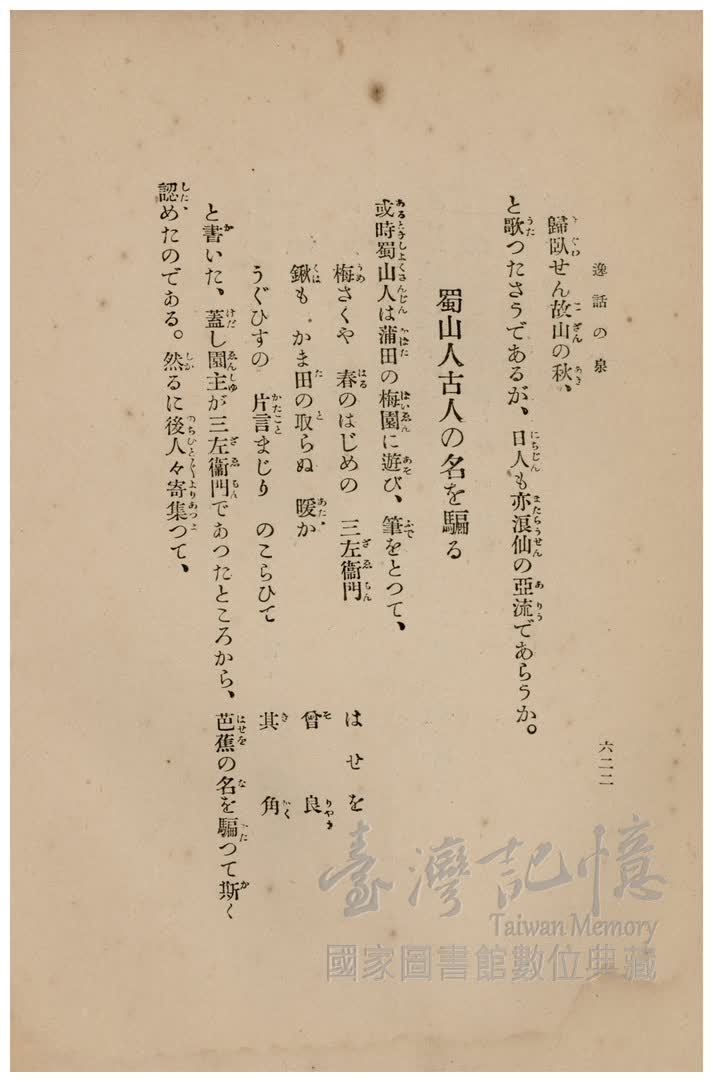 逸話の泉
六二二
歸臥せん故山の秋、
と歌つたさうであるが、日人も亦浪仙の亞流であらうか。
蜀山人古人の名を騙る
或時蜀山人は蒲田の梅園に遊び、筆をとつて、
梅さくや 春のはじめの 三左衞門 はせを
鍬も かま田の取らぬ 暖か 曾良
うぐひすの 片言まじり のこらひて 其角
と書いた、蓋し園主が三左衞門であつたところから、芭蕉の名を騙つて斯く
認めたのである。然るに後人々寄集つて、
臺灣記憶
Taiwan Memory
國家圖書館數位典藏